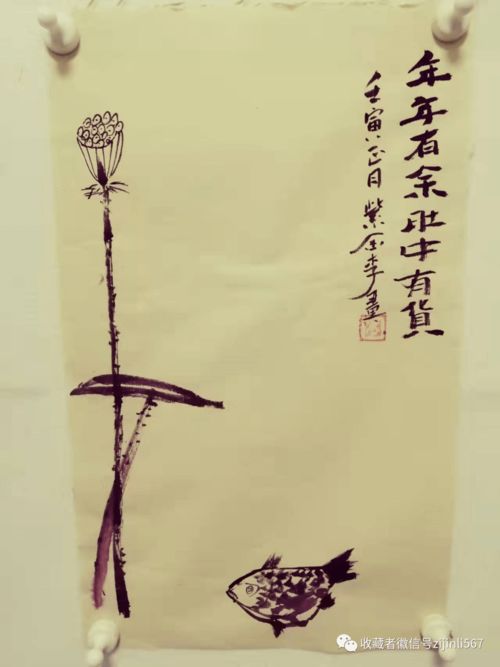 年年有余肚中有貨
壬寅正月紫金李量
收藏者微信号zijinli567